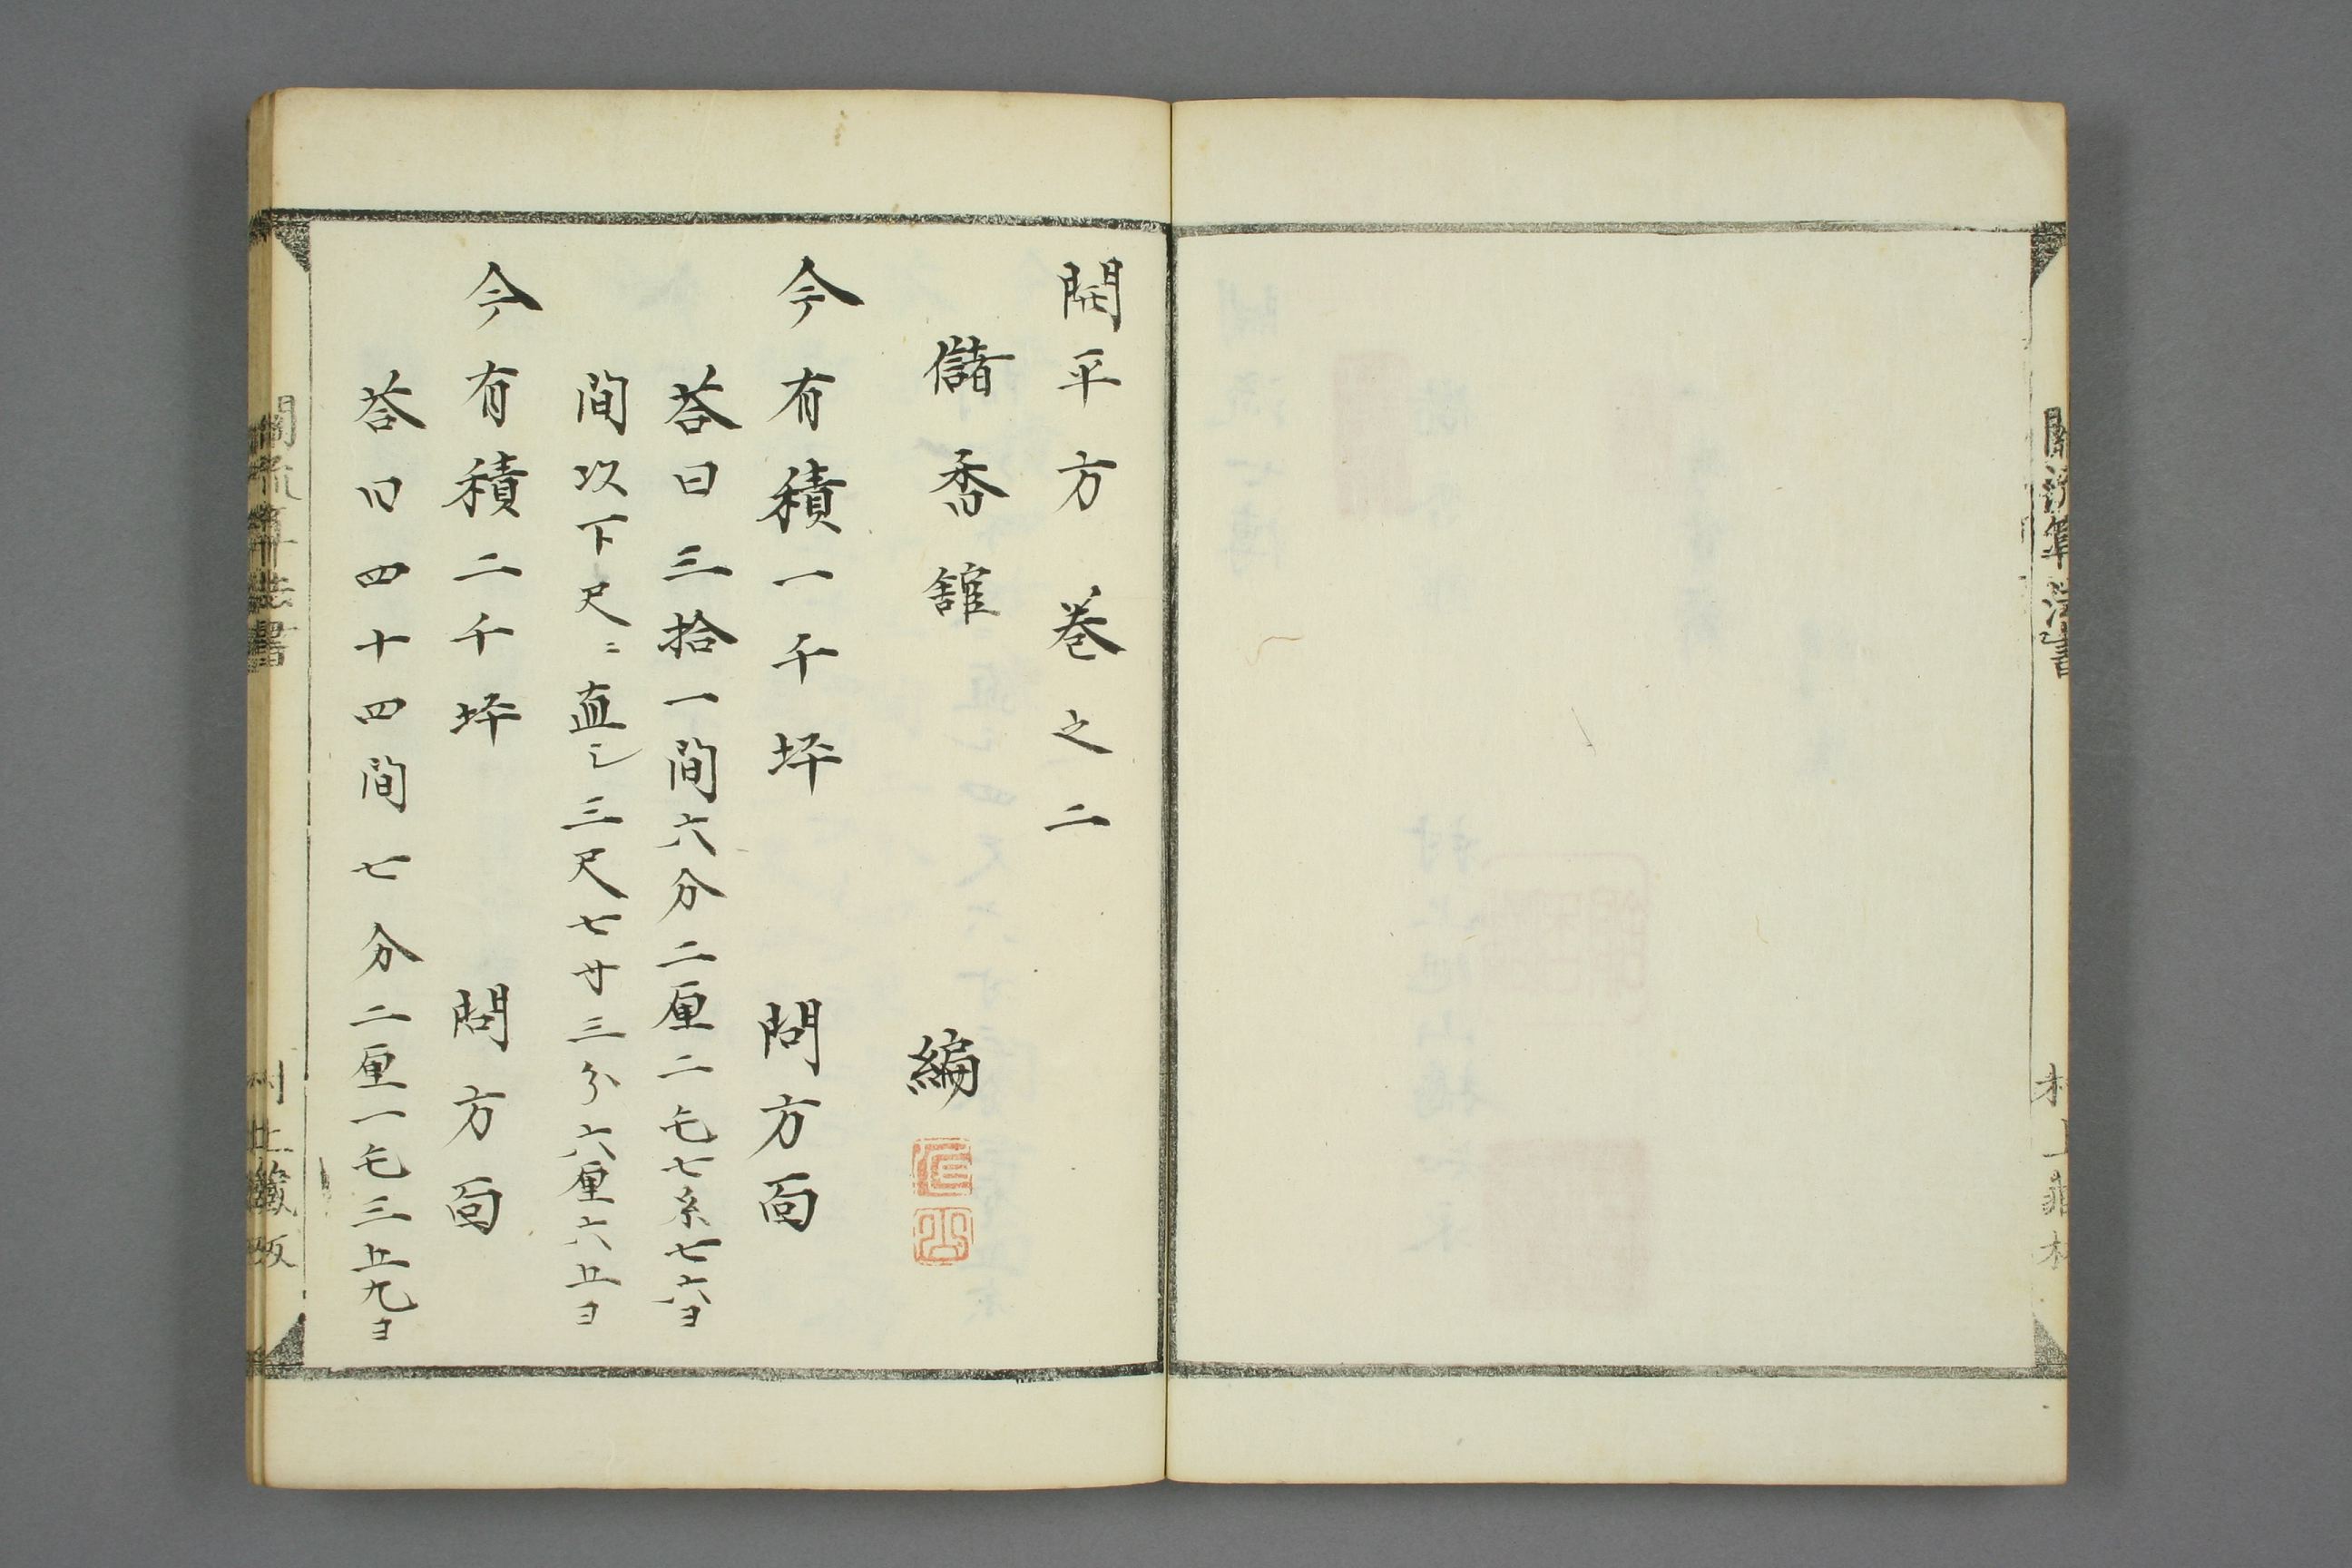 関流算法書
村上蔵板
開平方 巻之二
儲香舘 編
今有積一千坪 問方面
荅曰三拾一間六分二厘二毛七糸七六ヨ
間以下尺ニ直シ三尺七寸三分六厘六五ヨ
今有積二千坪 問方面
荅曰四十四間七分二厘一毛三五九ヨ
関流算法書
村上蔵板